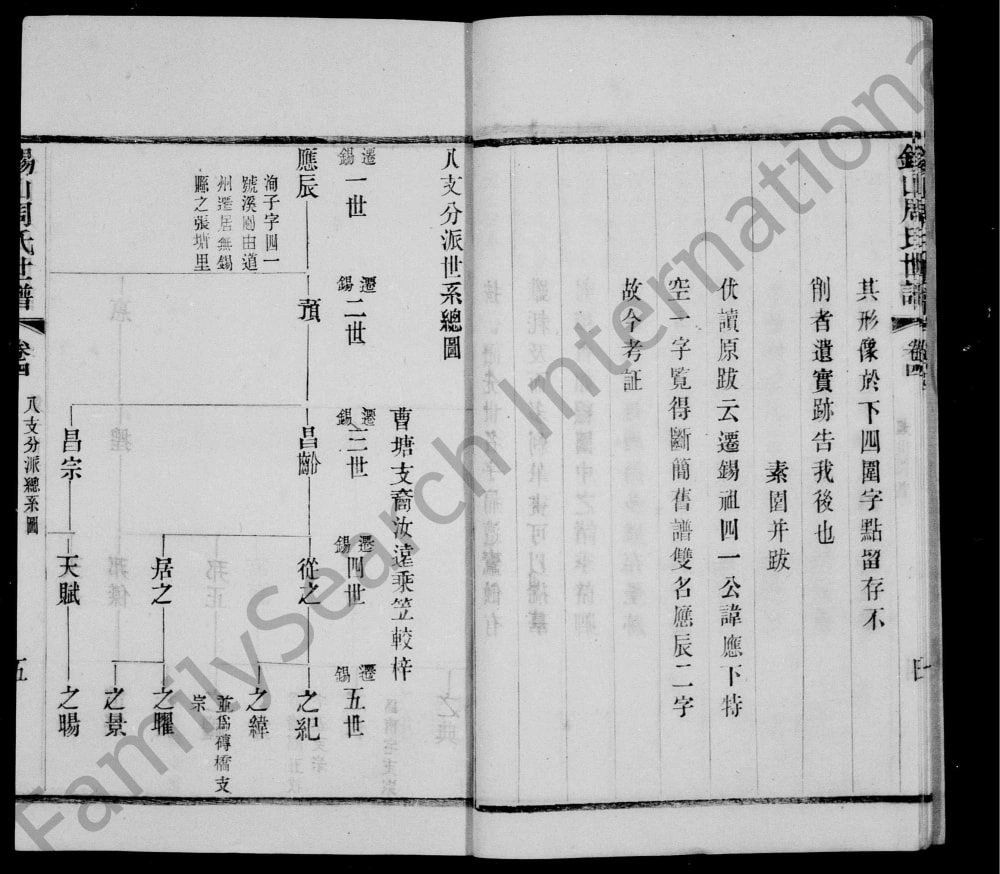 錫山周氏世譜
卷四
其形像於下四圍字點留存不
削者遺實跡告我後也
素園并跋
伏讀原跋云遷錫祖四一公諱應下特
空一字覧得斷簡舊譜雙名應辰二字
故今考証
八支分派世系總圖
曹塘支裔汝遠乘笠較梓
遷錫一世
遷錫二世
遷錫三世
遷錫四世
遷錫五世
應辰
洵子字四一
號溪園由道
州遷居無錫
縣之張塘里
蕷
昌齡
從之
之紀
之緯
並爲磚橋支
宗
居之
之曜
之景
昌宗
天賦
之暘
錫山周氏世譜
卷四
八支分派總系圖
五
FamilySearch International